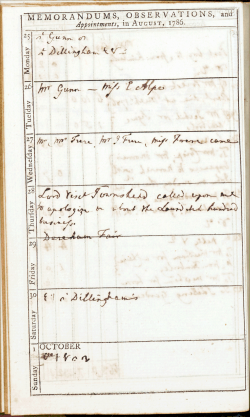 MEMORANDUMS, OBSERVATIONS, and
Appointments, in AUGUST, 1786.
25
Monday
Gunn
Dillingham
26
Tuesday
Mr Gunn — Miss E Alpe
27
Wednesday
Mr. Mrs Frere, Mr J Frere, Miss Frere came
Thursday
Lord Visct Townshend called upon me
to apologize about the hundred
business
Dereham Fair
29
Friday
30
Saturday
Dillingham's
1
Sunday
OCTOBER